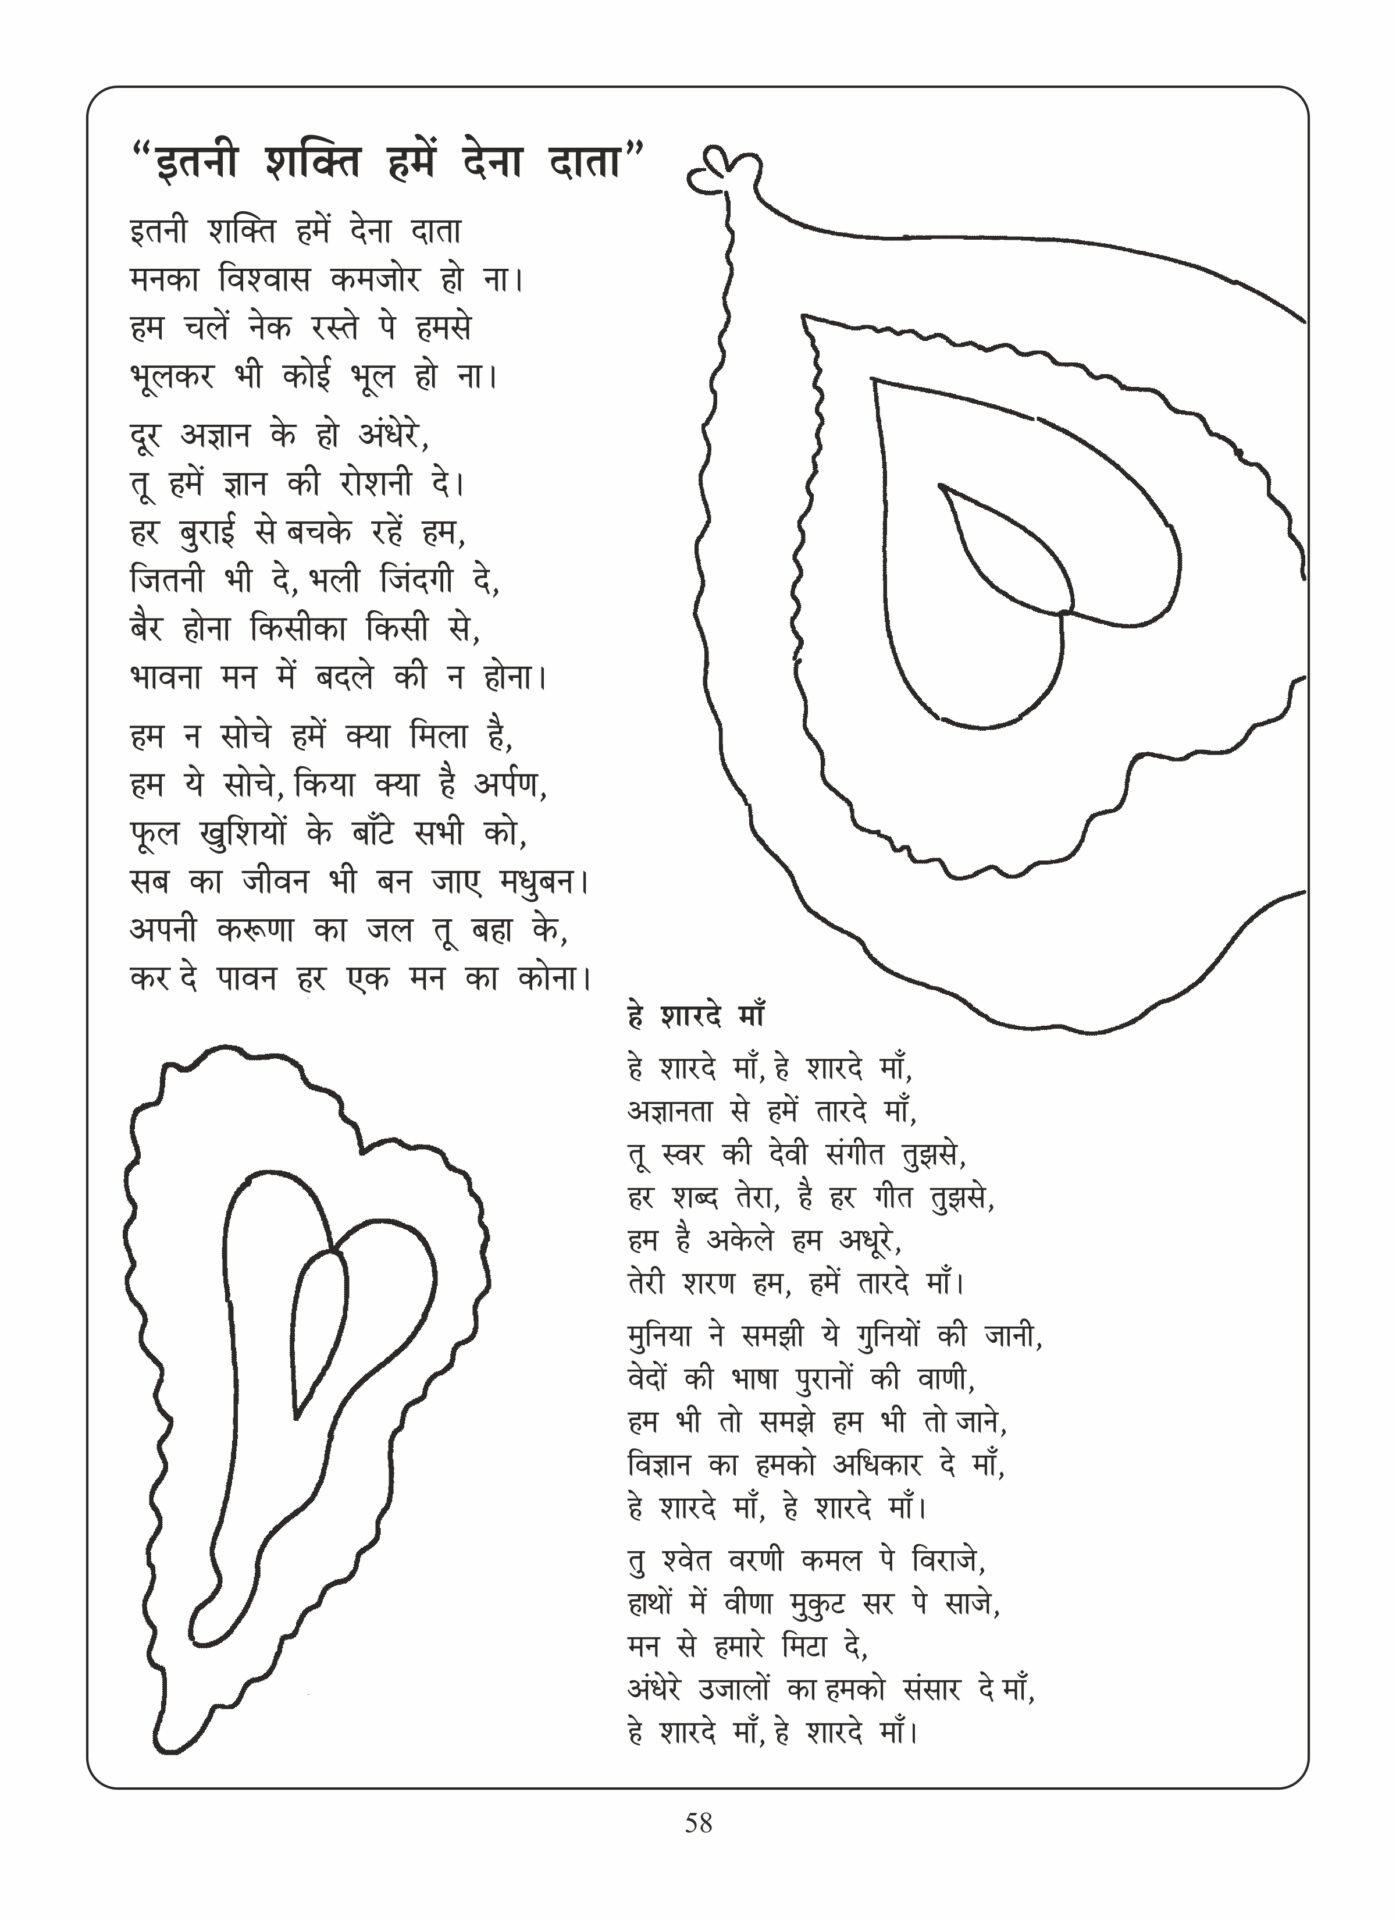 “इतनी शक्ति हमें देना दाता”
इतनी शक्ति हमें देना दाता
मनका विश्वास कमजोर हो ना।
हम चलें नेक रस्ते पे हमसे
भूलकर भी कोई भूल हो ना।
दूर अज्ञान के हो अंधेरे,
तू हमें ज्ञान की रोशनी दे।
हर बुराई से बचके रहें हम,
जितनी भी दे, भली जिंदगी दे,
बैर होना किसीका किसी से,
भावना मन में बदले की न होना।
हम न सोचे हमें क्या मिला है,
हम ये सोचे, किया क्या है अर्पण,
फूल खुशियों के बाँटे सभी को,
सब का जीवन भी बन जाए मधुबन।
अपनी करूणा का जल तू बहा के,
कर दे पावन हर एक मन का कोना।
हे शारदे माँ
हे शारदे माँ, हे शारदे माँ,
अज्ञानता से हमें तारदे माँ,
तू स्वर की देवी संगीत तुझसे,
हर शब्द तेरा, है हर गीत तुझसे,
हम है अकेले हम अधूरे,
तेरी शरण हम, हमें तारदे माँ।
मुनिया ने समझी ये गुनियों की जानी,
वेदों की भाषा पुरानों की वाणी,
हम भी तो समझे हम भी तो जाने,
विज्ञान का हमको अधिकार दे माँ,
हे शारदे माँ, हे शारदे माँ।
तु श्वेत वरणी कमल पे विराजे,
हाथों में वीणा मुकुट सर पे साजे,
मन से हमारे मिटा दे,
अंधेरे उजालों का हमको संसार दे माँ,
हे शारदे माँ, हे शारदे माँ।
58